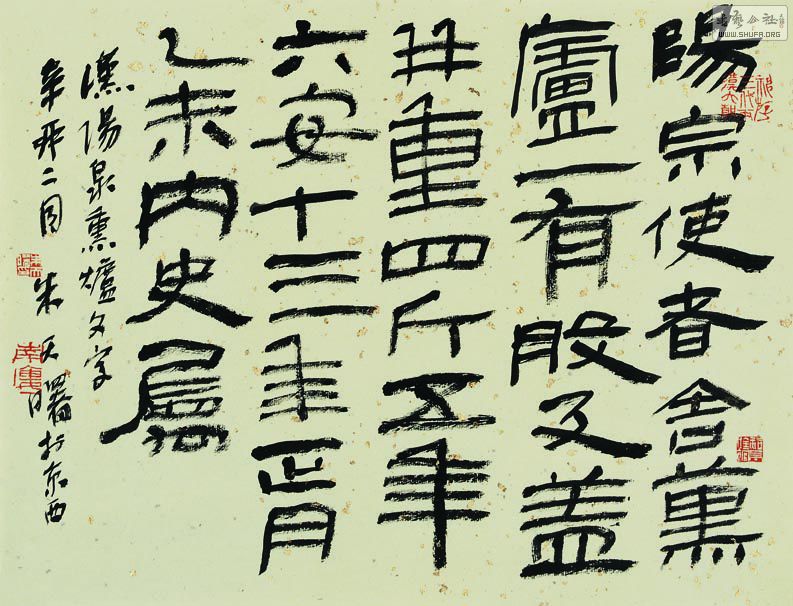 陽宗使者舍薰
盧一有股及蓋
并重四斤五年
六安十三年正月
乙未内史屬
漢陽泉熏爐文字
辛卯二月 朱天曙於京西
书艺公社
WWW.SHUFA.ORG